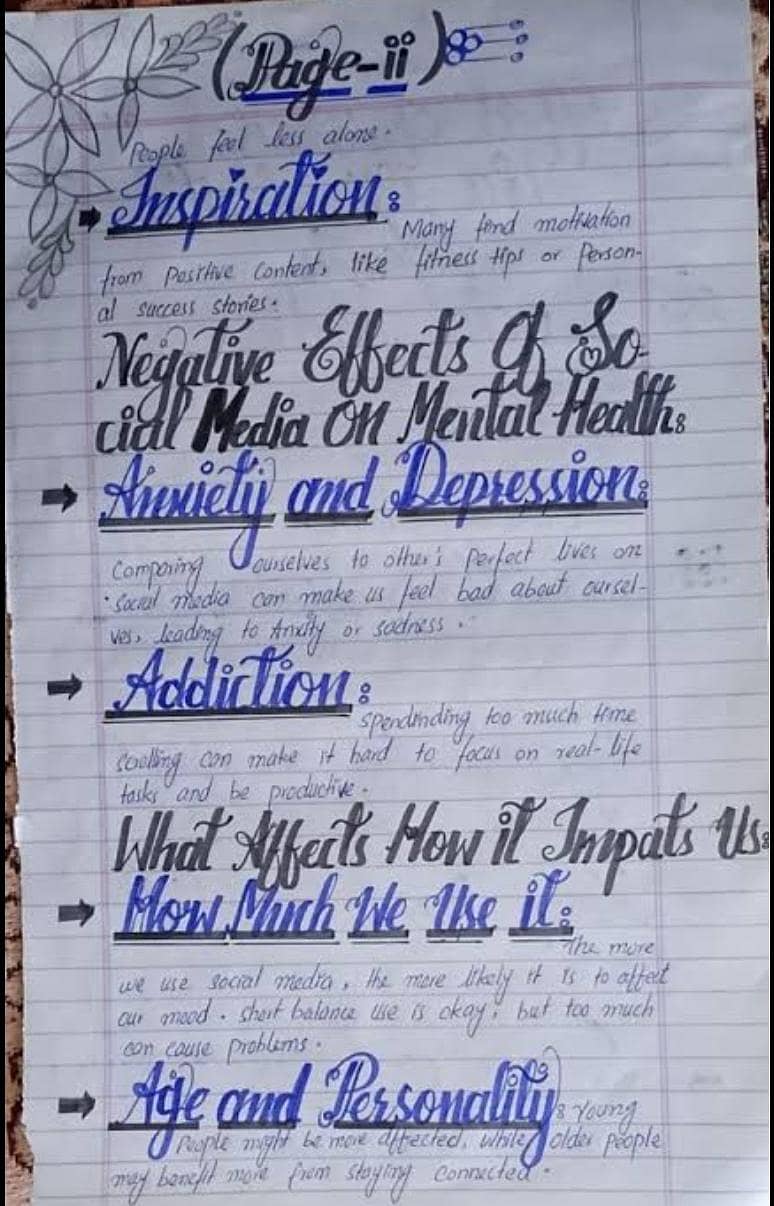 (Page-ii)
People feel less alone.
Inspiration:
Many find motivation
from positive content, like fitness tips or person-
al success stories.
Negative Effects Of So-
cial Media On Mental Health:
Anxiety and Depression:
Comparing ourselves to other's perfect lives on
social media can make us feel bad about oursel-
ves, leading to Anxity or sadness.
Addiction:
spendinding too much time
scrolling can make it hard to focus on real-life
tasks and be productive.
What Affects How it Impats Us:
How Much We Use it:
The more
we use social media, the more likely it is to affect
our mood. short balance use is okay, but too much
can cause problems.
Age and Personality: Young
People might be more affected, while older people
may benefit more from staying connected.